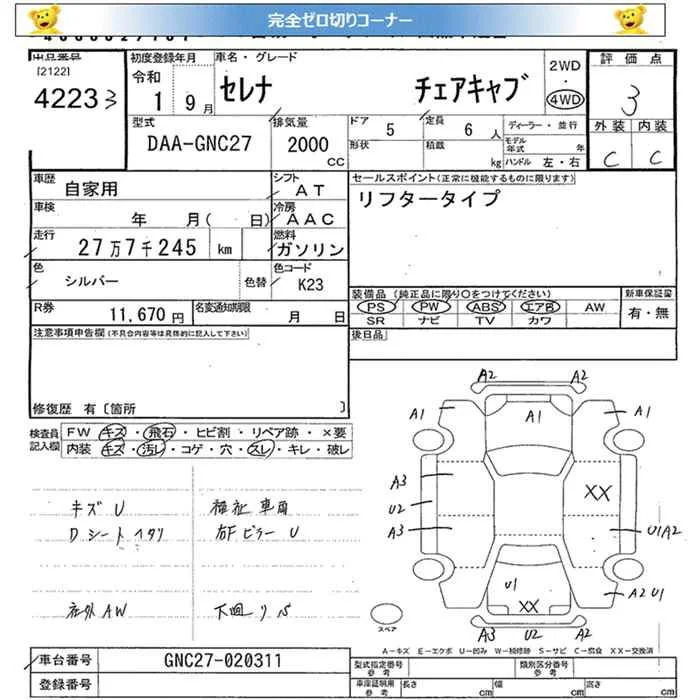 完全ゼロ切りコーナー
出品番号
[2122]
4223 3
初度登録年月
令和
1 9月
車名・グレード
セレナ チェアキャブ
2WD
・
4WD
評価点
3
外装 内装
C C
型式
DAA-GNC27
排気量
2000
CC
ドア 5 定員 6 人
形状 積載 kg
ディーラー・並行
モデル年式 年
ハンドル 左・右
車歴 自家用
シフト AT
車検 年 月( 日)
冷房 AAC
走行 27万7千245 km
燃料 ガソリン
色 シルバー 色替
色コード K23
R券 11,670円
名変通知期限 月 日
セールスポイント(正常に機能するものに限ります)
リフタータイプ
装備品 (純正品に限り○をつけてください)
PS PW ABS エアB AW
SR ナビ TV カワ
新車保証書
有・無
後日品
注意事項申告欄(不具合内容等は具体的に記入して下さい)
修復歴 有〔箇所 〕
検査員記入欄
FW キズ・飛石・ヒビ割・リペア跡・×要
内装 キズ・汚レ・コゲ・穴・スレ・キレ・破レ
キズ U 福祉車両
Dシートヘタリ 右Fピラー U
社外AW 下回リ
A2 A2
A1 A1 A1
A3 XX
U2
A3 U1A2
U1 A2U1
XX
A3 U2 A2
スペア
A-キズ E-エクボ U-凹み W-補修跡 S-サビ C-腐食 XX-交換済
車台番号 GNC27-020311
登録番号
型式指定番号
参考
類別区分番号
参考
車庫証明用
参考
長さ cm 幅 cm 高さ cm